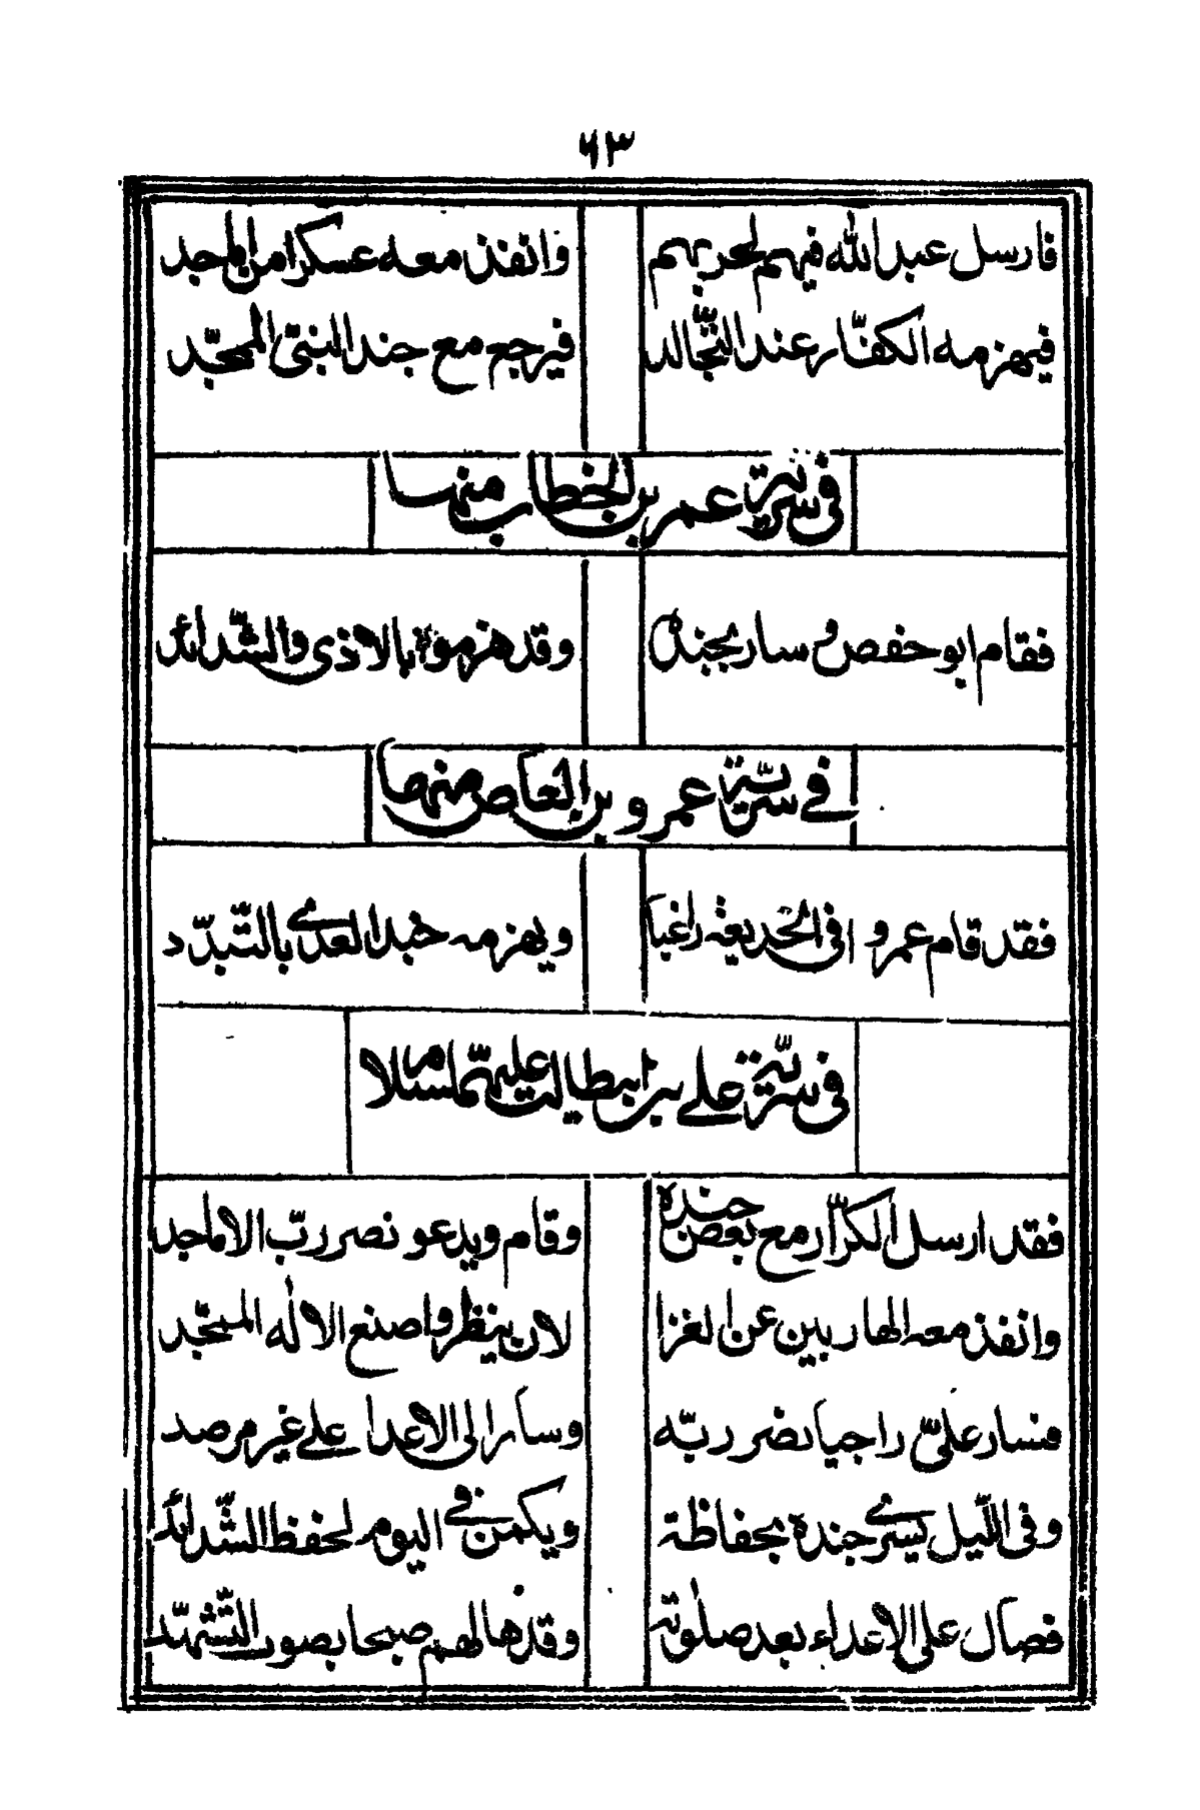 ٦٣
فارسل عبد الله فيهم لحربهم وانفذ معه عسكرا من اماجد
فيهزمه الكفّار عند التجالد فيرجع مع جند النبىّ الممجّد
فى سرية عمر بن الخطاب منها
فقام ابو حفص و سار بجنده وقد هزموه بالاذى والشّدائد
فى سريّة عمرو بن العاص منها
فقد قام عمرو فى الخديعة راغبا ويهزمه جند العدى بالتبدّد
فى سريّة على بن ابيطالب عليهما السلام
فقد ارسل الكرّار مع بعض جنده وقام ويدعو نصر ربّ الاماجد
وانفذ معه الهاربين عن الغزا لان ينظروا صنع الاله الممجّد
فسار علىّ راجيا نصر ربّه وسار الى الاعدا على غير مرصد
وفى اللّيل يسرى جنده بحفاظة ويكمن فى اليوم لحفظ الشّدائد
فصال على الاعداء بعد صلوته وقد هالهم صبحا بصوت التّشهّد